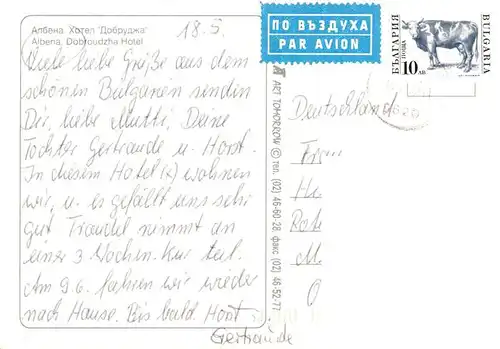 Албена. Хотел "Добруджа"
Albena. Dobroudzha Hotel
18.5.
Viele liebe Grüße aus dem
schönen Bulgarien senden
Dir, liebe Mutti, Deine
Tochter Gertraude u. Horst.
In diesem Hotel (x) wohnen
wir, u. es gefällt uns sehr
gut. Traudel nimmt an
einer 3 Wochen-Kur teil.
Am 9.6. fahren wir wieder
nach Hause. Bis bald Horst
Gertraude
ART TOMORROW © тел. (02) 46-60-28, факс (02) 46-52-77
ПО ВЪЗДУХА
PAR AVION
БЪЛГАРИЯ
ПОЩА
10 ЛВ
BULGARIA
Deutschland